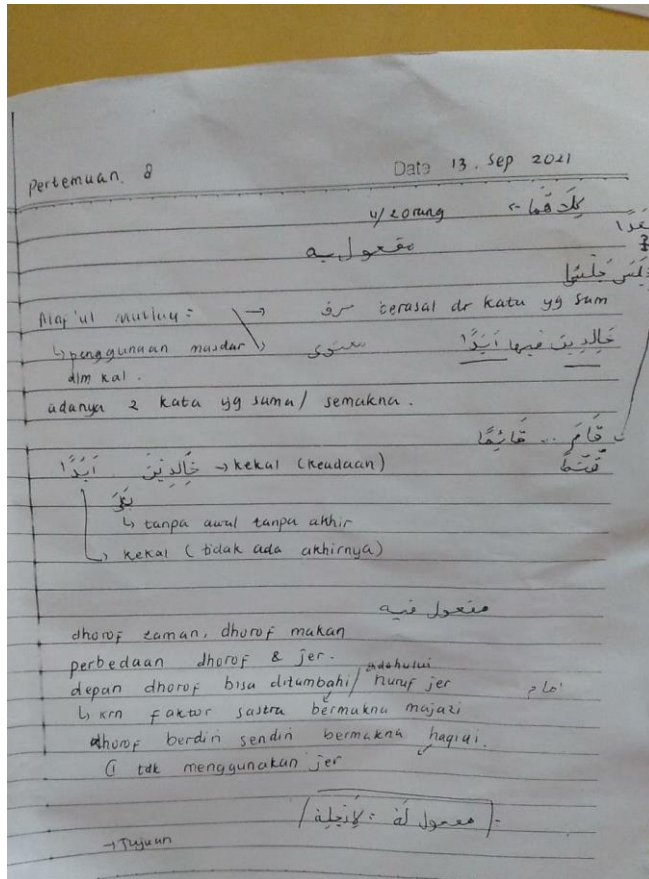 Pertemuan. 8 Date 13. Sep 2021
4/2 orang
مفعول به
جلس
Maf'ul mutluq : → berasal dr kata yg sam
↳ penggunaan masdar معنوى خَالِدِينَ فيها أَبَدًا
dlm kal.
adanya 2 kata yg sama / semakna.
قَامَ .. قَائِمًا
خَالِدِيْنَ → kekal (keadaan) أَبَدًا
↳ tanpa awal tanpa akhir
↳ kekal ( tidak ada akhirnya)
مفعول فيه
dhorof zaman, dhorof makan
perbedaan dhorof & jer.
depan dhorof bisa ditumbahi / didahului huruf jer
↳ krn faktor sastra bermakna majazi
dhorof berdiri sendiri bermakna haqiqi.
tdk menggunakan jer
مفعول لَهُ
→ Tujuan